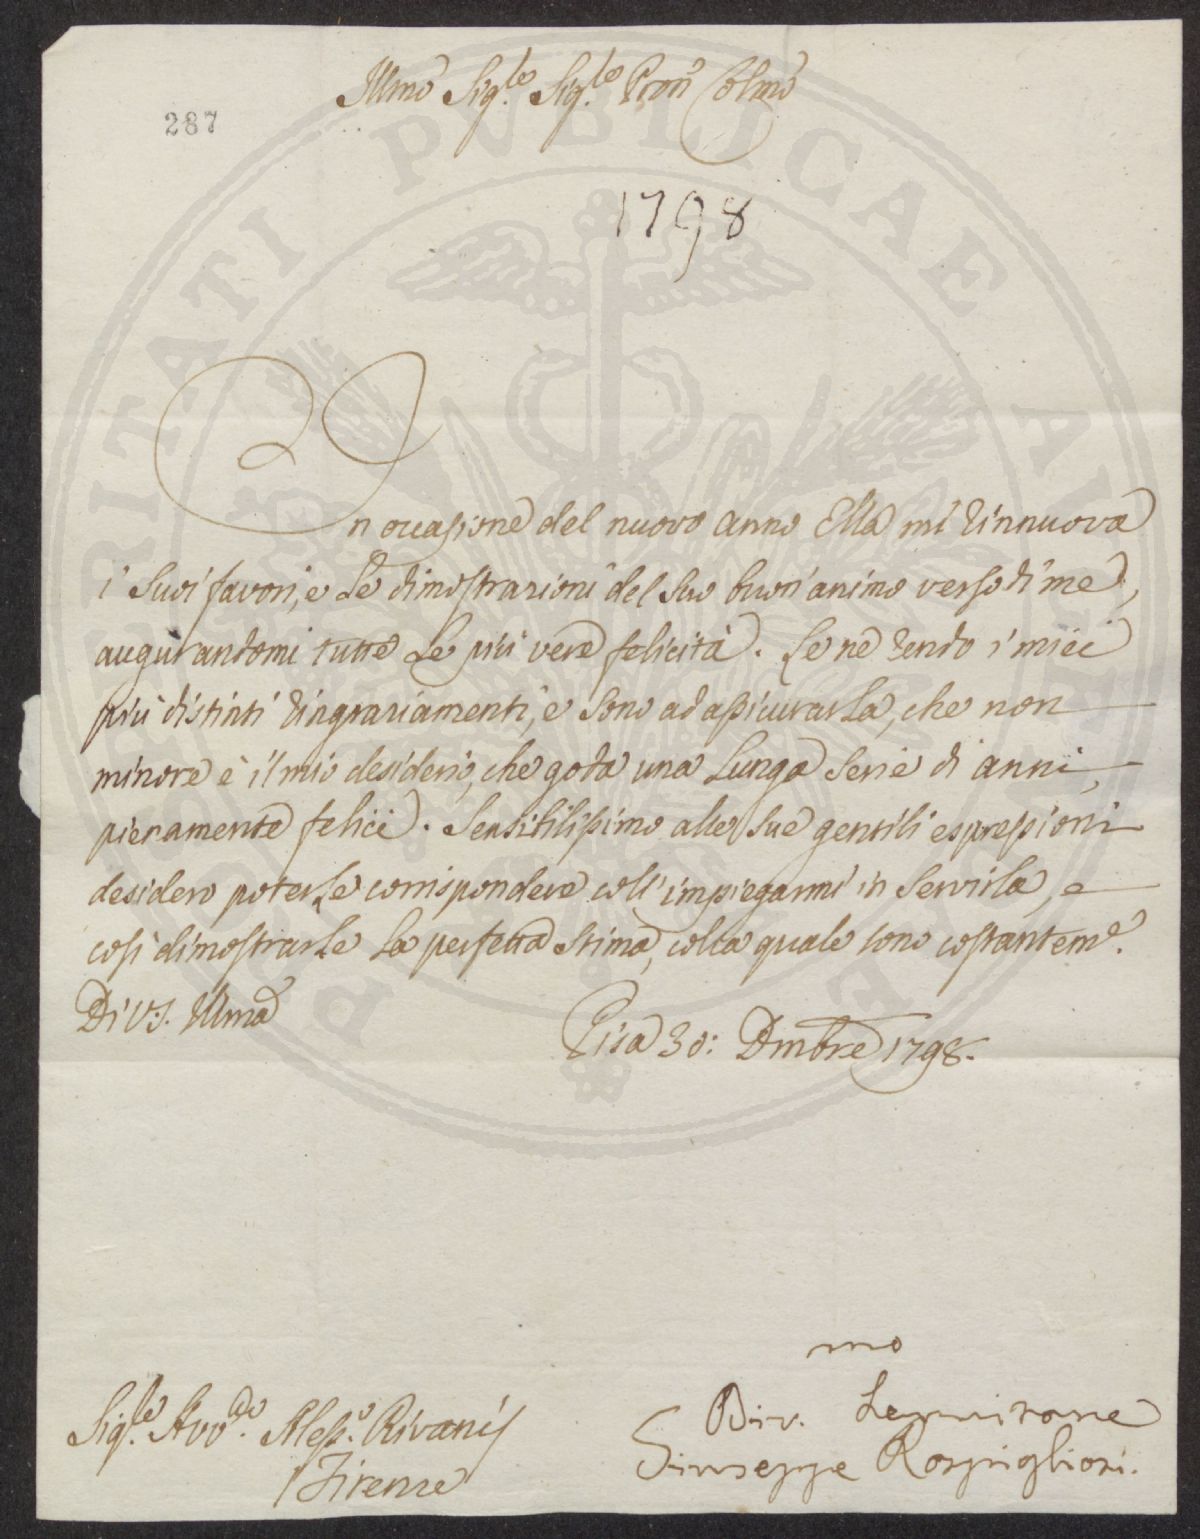 Illmo Sig.re Sig.re Pron Colmo
287
1798
In occasione del nuovo anno Ella mi rinnuova
i suoi favori, e le dimostrazioni del suo buon'animo verso di me,
augurandomi tutte le più vere felicità. Le ne rendo i miei
più distinti ringraziamenti, e sono ad assicurarla, che non
minore è il mio desiderio, che goda una lunga serie di anni
pienamente felici. Sensibilissimo alle sue gentili espressioni
desidero poterle corrispondere coll'impiegarmi in servirla, e
così dimostrarle la perfetta stima, colla quale sono costanteme.
Di V.S. Illma
Pisa 30: Dmbre 1798.
mo
Div.
Sig.re Avv.do Aless.o Rivani
Giuseppe Rospigliosi.
Firenze